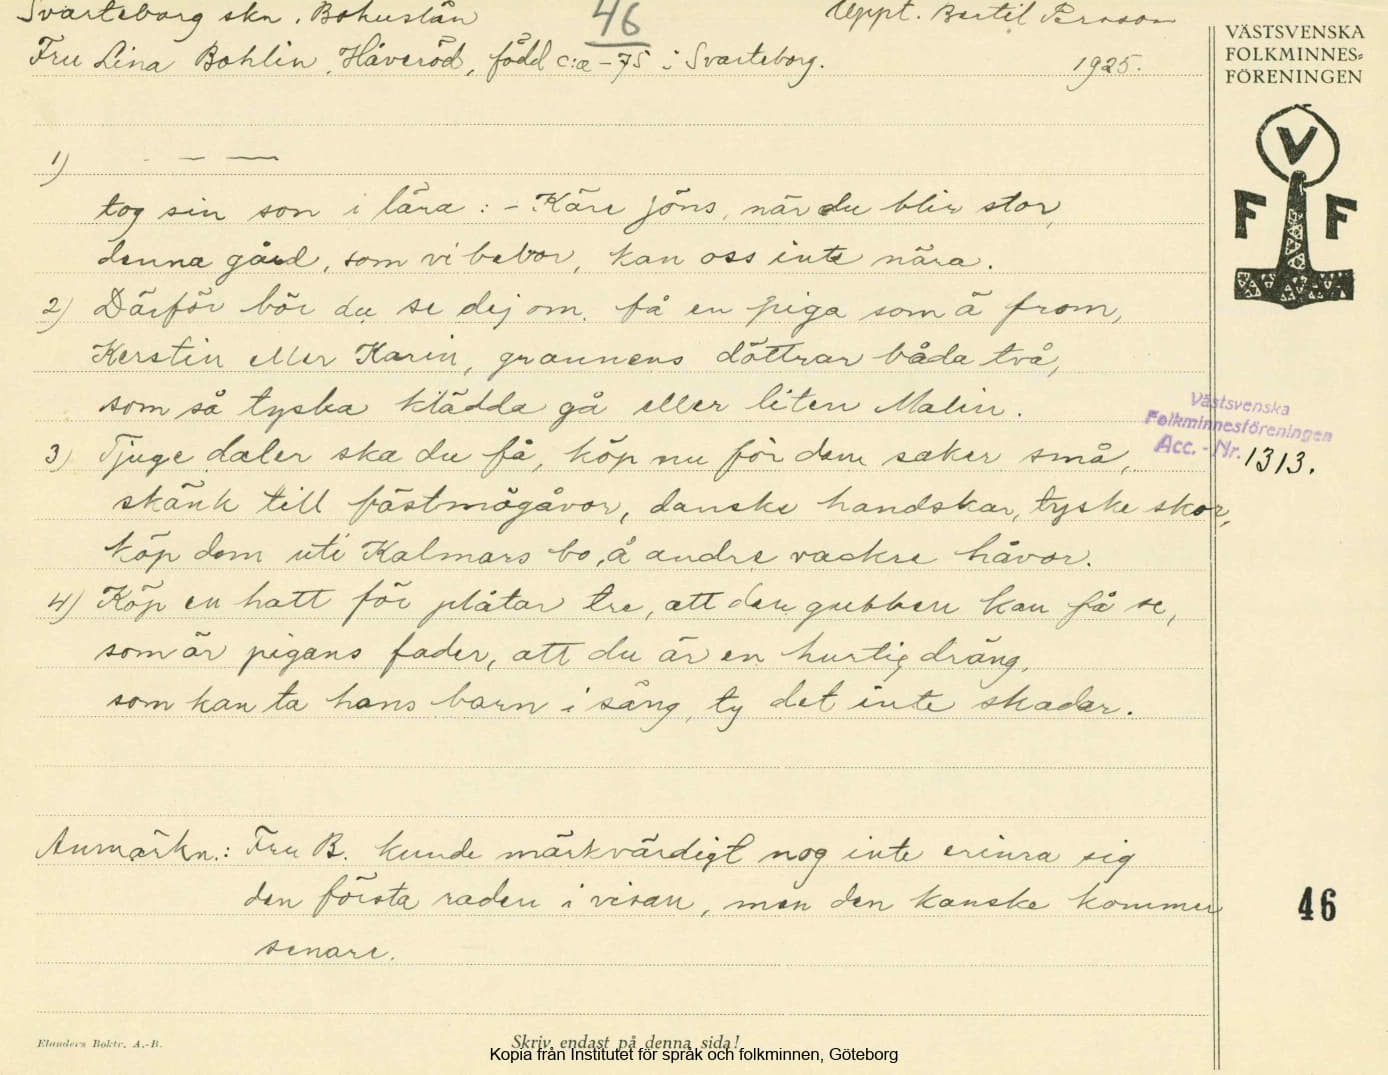 Svarteborg skn. Bohuslän
46
Uppt. Bertil Persson
Fru Lina Bohlin, Håveröd, född c:a -75 i Svarteborg.
1925.
VÄSTSVENSKA
FOLKMINNES=
FÖRENINGEN
V
F F
1) - — —
tog sin son i lära : - Käre jöns, när du blir stor,
denna gård, som vi bebor, kan oss inte nära.
2) Därför bör du se dej om, få en piga som ä from,
Kerstin eller Karin, grannens döttrar båda två,
som så tyska klädda gå eller liten Malin.
Västsvenska
Folkminnesföreningen
Acc. - Nr. 1313.
3) Tjuge daler ska du få, köp nu för dem saker små,
skänk till fästmögåvor, danske handskar, tyske skor,
köp dem uti Kalmars bo, å andre vackre håvor.
4) Köp en hatt för plåtar tre, att den gubben kan få se,
som är pigans fader, att du är en hurtig dräng,
som kan ta hans barn i säng, ty det inte skadar.
Anmärkn.: Fru B. kunde märkvärdigt nog inte erinra sig
den första raden i visan, men den kanske kommer
senare.
46
Elanders Boktr. A.-B.
Skriv endast på denna sida!
Kopia från Institutet för språk och folkminnen, Göteborg